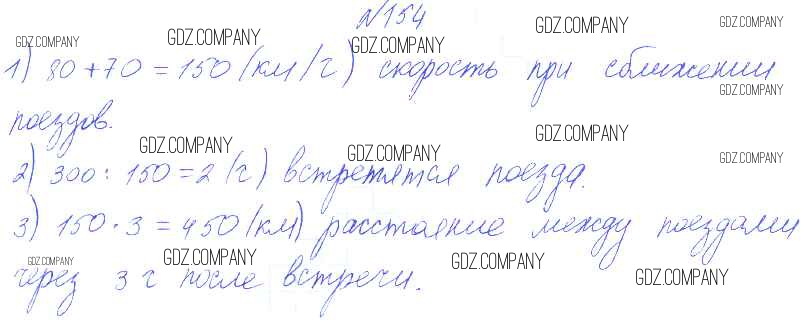 №154
GDZ.COMPANY GDZ.COMPANY GDZ.COMPANY GDZ.COMPANY GDZ.COMPANY
1) 80 + 70 = 150 (км/ч) скорость при сближении
GDZ.COMPANY
поездов.
GDZ.COMPANY GDZ.COMPANY GDZ.COMPANY GDZ.COMPANY
2) 300 : 150 = 2 (ч) встретятся поезда.
3) 150 · 3 = 450 (км) расстояние между поездами
GDZ.COMPANY GDZ.COMPANY GDZ.COMPANY GDZ.COMPANY
через 3 ч после встречи.